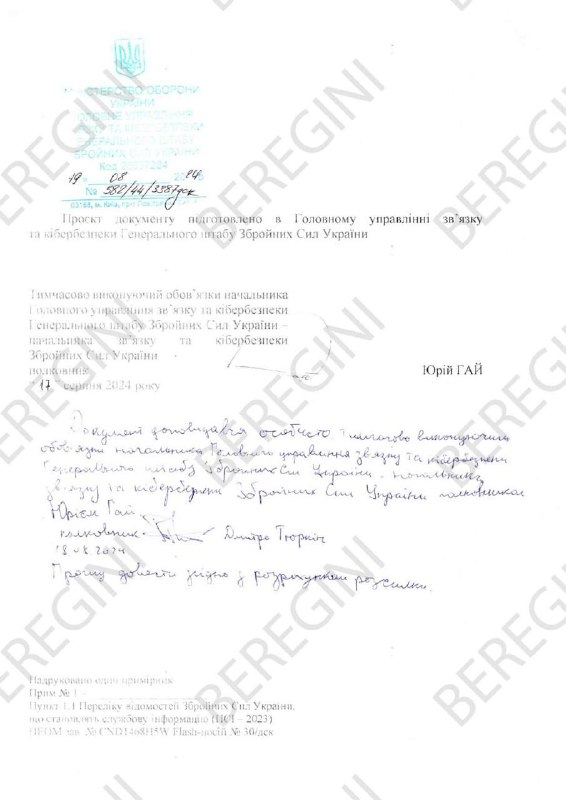 МІНІСТЕРСТВО ОБОРОНИ
УКРАЇНИ
ГОЛОВНЕ УПРАВЛІННЯ
ТА КІБЕРБЕЗПЕКИ
ГЕНЕРАЛЬНОГО ШТАБУ
ЗБРОЙНИХ СИЛ УКРАЇНИ
Код
19 08 2024
№ 582/44/3387дск
03168, м. Київ,
Проєкт документу підготовлено в Головному управлінні зв'язку
та кібербезпеки Генерального штабу Збройних Сил України
Тимчасово виконуючий обов'язки начальника
Головного управління зв'язку та кібербезпеки
Генерального штабу Збройних Сил України –
начальника зв'язку та кібербезпеки
Збройних Сил України
полковник
Юрій ГАЙ
17 серпня 2024 року
Документ доповідався особисто Тимчасово виконуючому
обов'язки начальника Головного управління зв'язку та кібербезпеки
Генерального штабу Збройних Сил України - начальнику
зв'язку та кібербезпеки Збройних Сил України полковником
Юрієм Гай
полковник Дмитро Тюркіч
18.08.2024
Прошу довести згідно з розрахунком розсилки.
Надруковано один примірник
Прим № 1 –
Пункт 1.1 Переліку відомостей Збройних Сил України,
що становлять службову інформацію (ПСІ – 2023)
ПЕОМ зав. № CND1468H5W Flash-носій № 30/дск
BEREGINI
BEREGINI
BEREGINI
BEREGINI
BEREGINI
BEREGINI
BEREGINI
BEREGINI